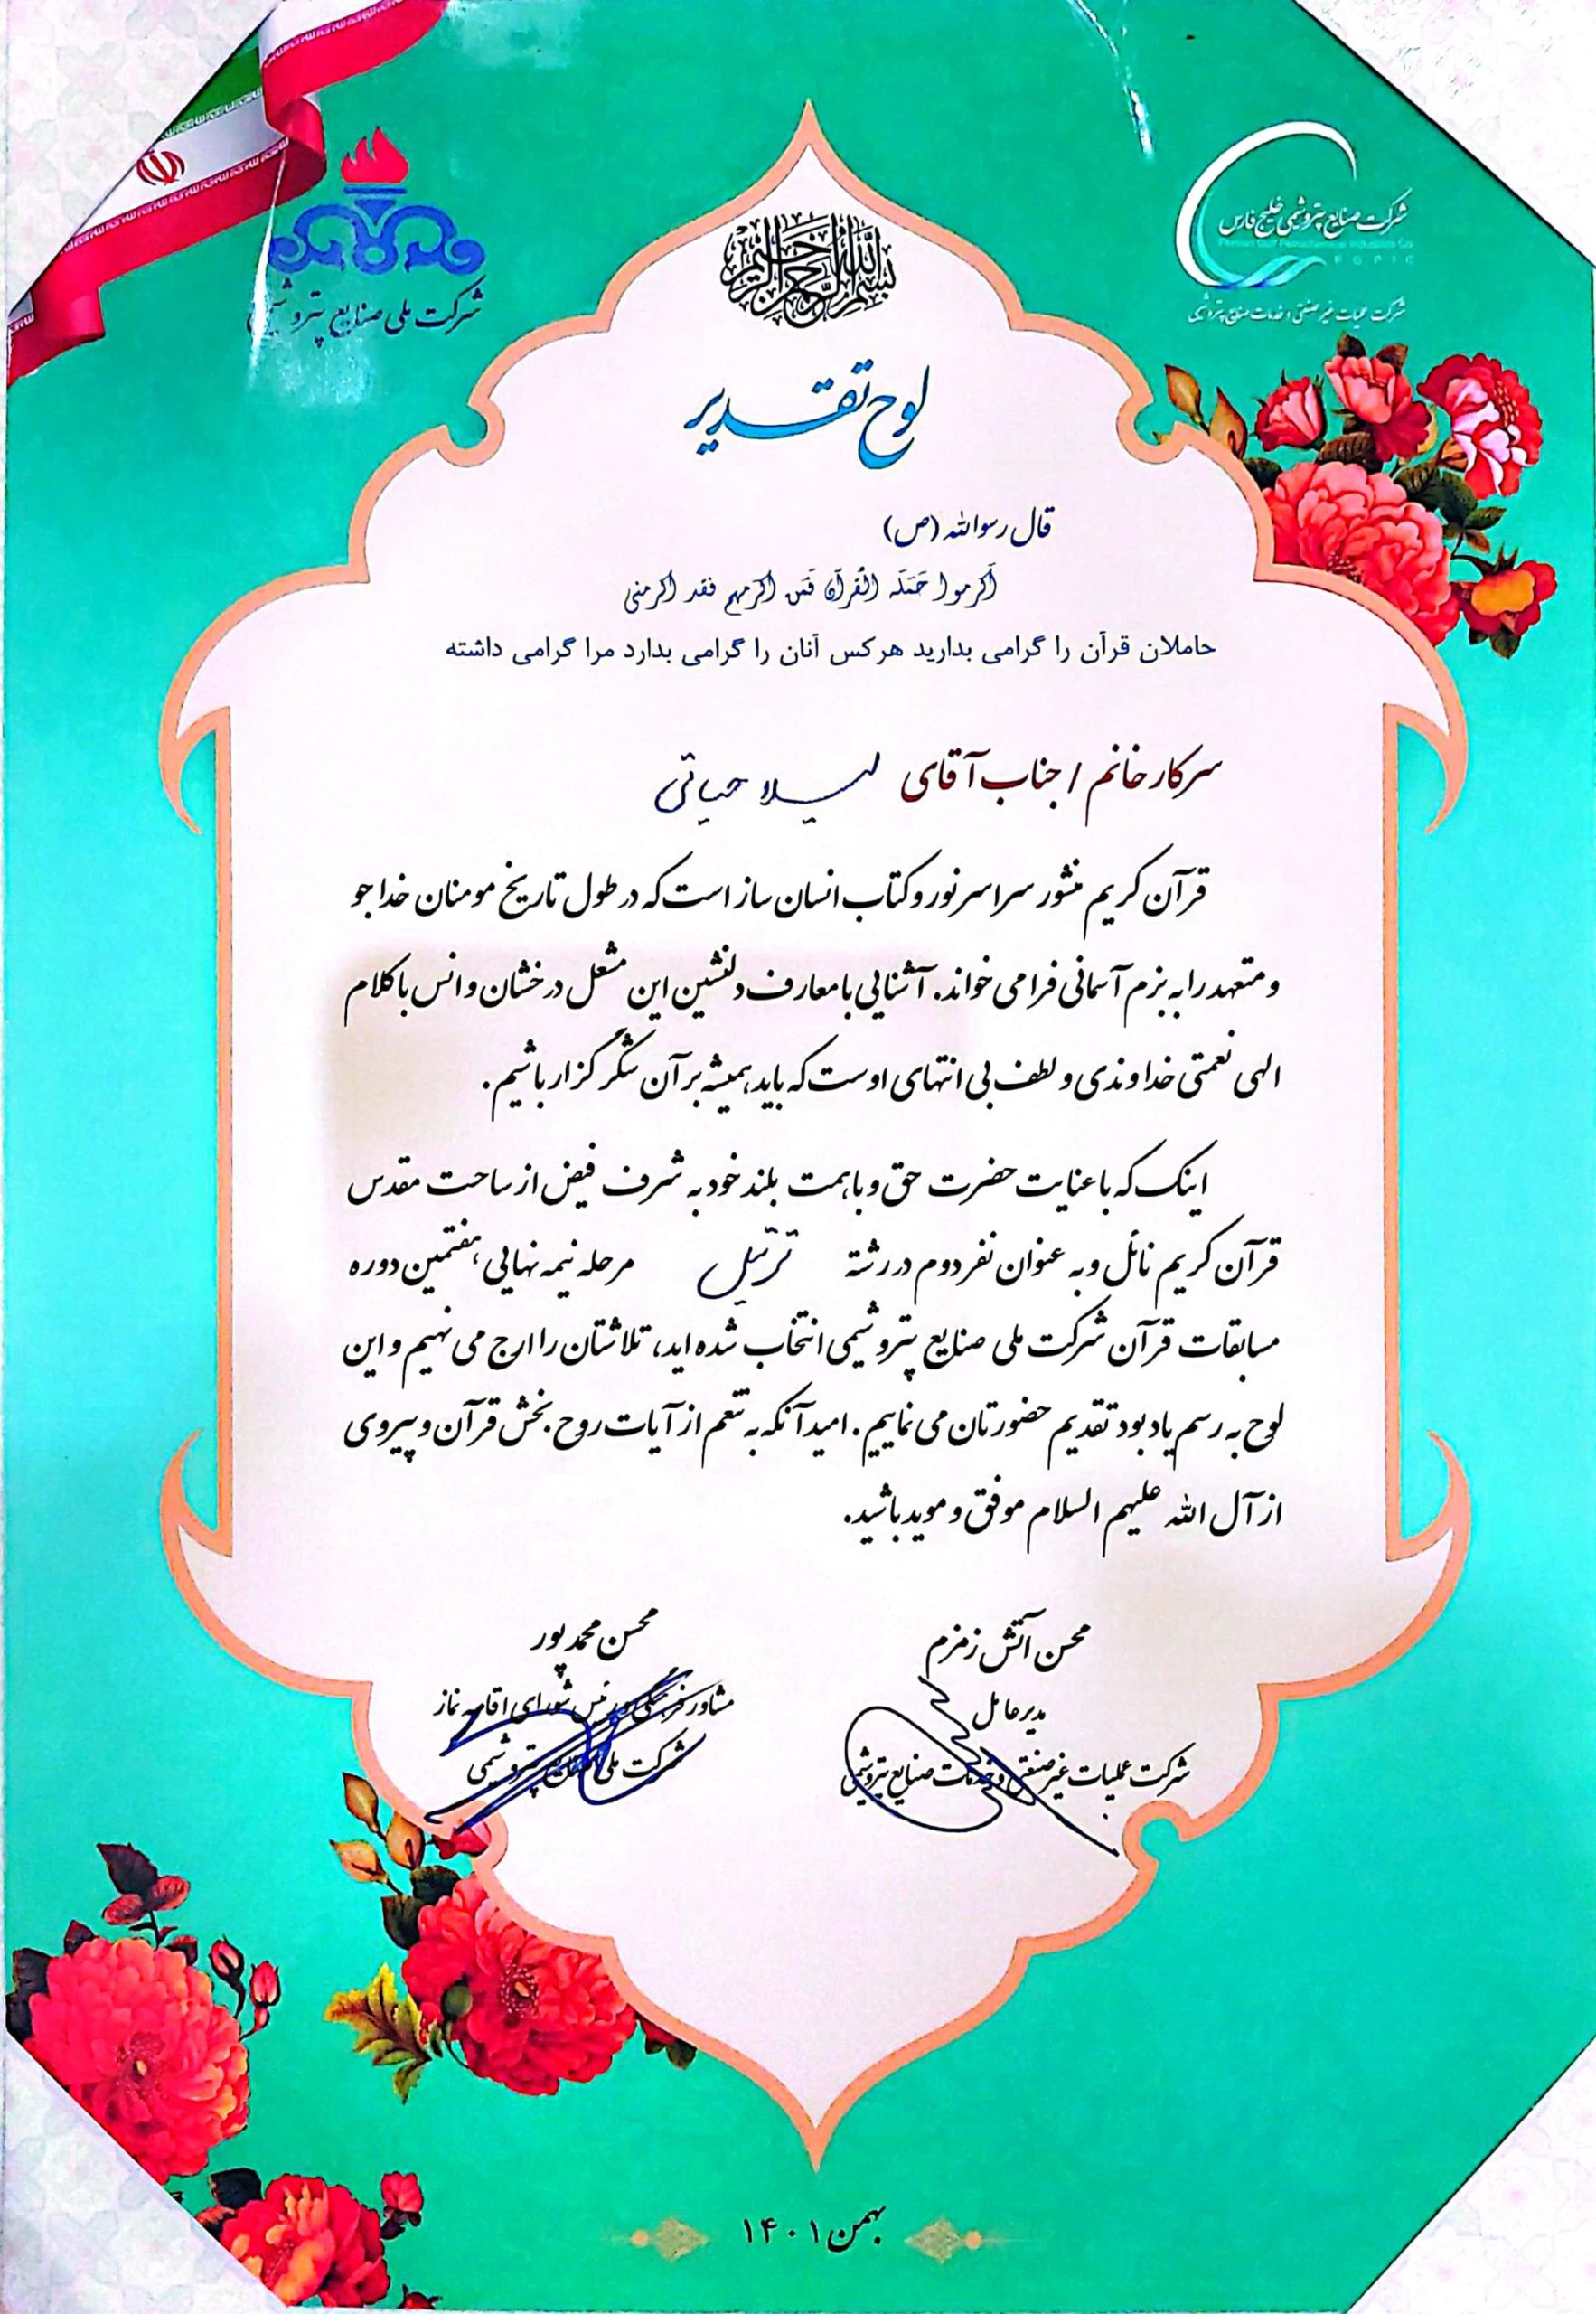 شرکت ملی صنایع پتروشیمی
شرکت صنایع پتروشیمی خلیج فارس
Persian Gulf Petrochemical Industries Co
P G P I C
شرکت عملیات غیرصنعتی و خدمات صنایع پتروشیمی
بسم الله الرحمن الرحیم
لوح تقدیر
قال رسوالله (ص)
أکرموا حَمَلَه القُرآن فَمَن اکرمهم فقد اکرمنی
حاملان قرآن را گرامی بدارید هرکس آنان را گرامی بدارد مرا گرامی داشته
سرکار خانم / جناب آقای لیلا حیاتی
قرآن کریم منشور سراسر نور و کتاب انسان ساز است که در طول تاریخ مومنان خدا جو
و متعهد را به بزم آسمانی فرا می خواند. آشنایی با معارف دلنشین این مشعل درخشان و انس با کلام
الهی نعمتی خداوندی و لطف بی انتهای اوست که باید همیشه بر آن شکر گزار باشیم.
اینک که با عنایت حضرت حق و با همت بلند خود به شرف فیض از ساحت مقدس
قرآن کریم نائل و به عنوان نفر دوم در رشته ترتیل مرحله نیمه نهایی، هفتمین دوره
مسابقات قرآن شرکت ملی صنایع پتروشیمی انتخاب شده اید، تلاشتان را ارج می نهیم و این
لوح به رسم یادبود تقدیم حضورتان می نماییم. امید آنکه به تنعم از آیات روح بخش قرآن و پیروی
از آل الله علیهم السلام موفق و موید باشید.
محسن آتش زمزم
مدیرعامل
شرکت عملیات غیرصنعتی و خدمات صنایع پتروشیمی
محسن محمدپور
مشاور فرهنگی و رئیس شورای اقامه نماز
شرکت ملی صنایع پتروشیمی
بهمن ۱۴۰۱